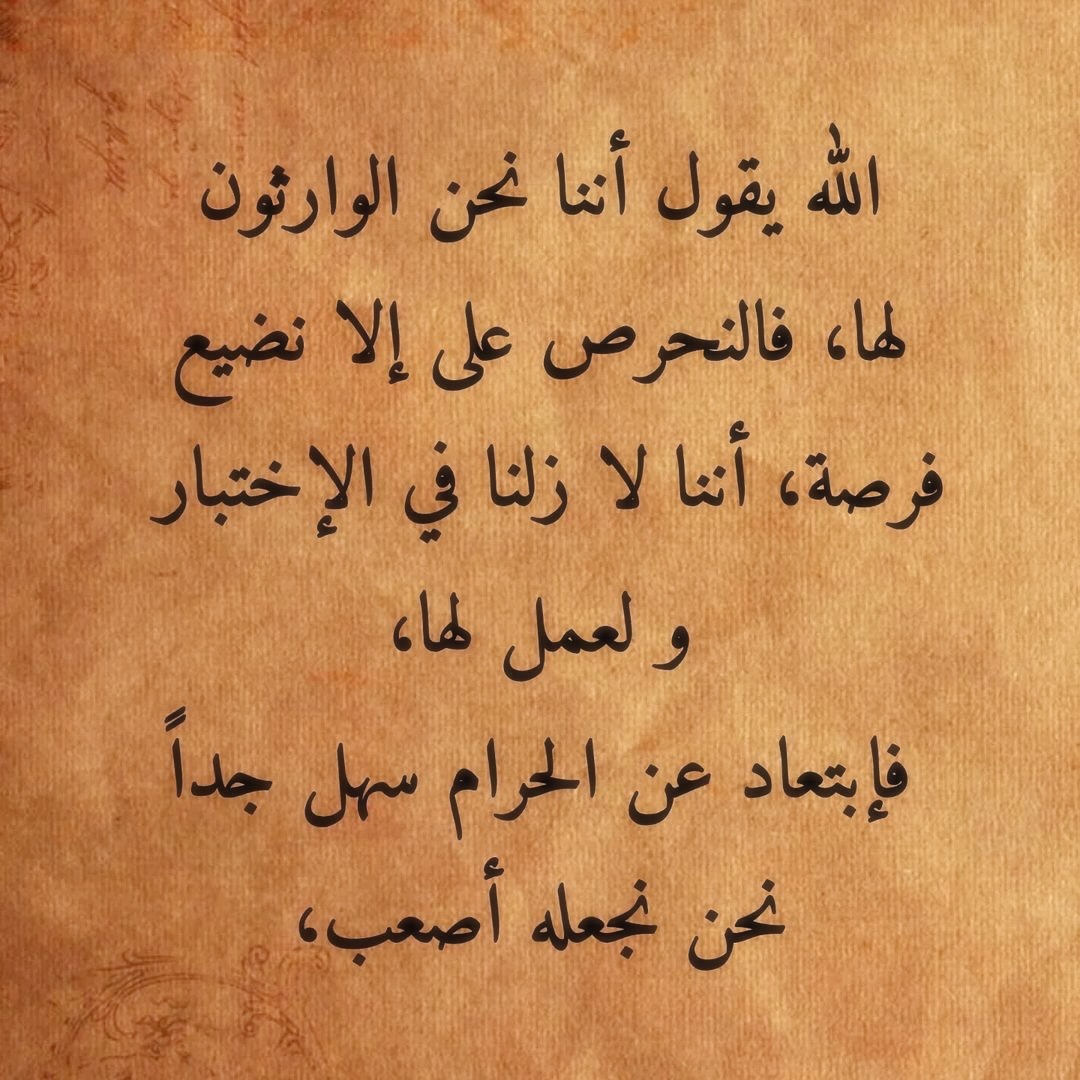 الله يقول أننا نحن الوارثون
لها، فالنحرص على إلا نضيع
فرصة، أننا لا زلنا في الإختبار
و لعمل لها،
فإبتعاد عن الحرام سهل جداً
نحن نجعله أصعب،